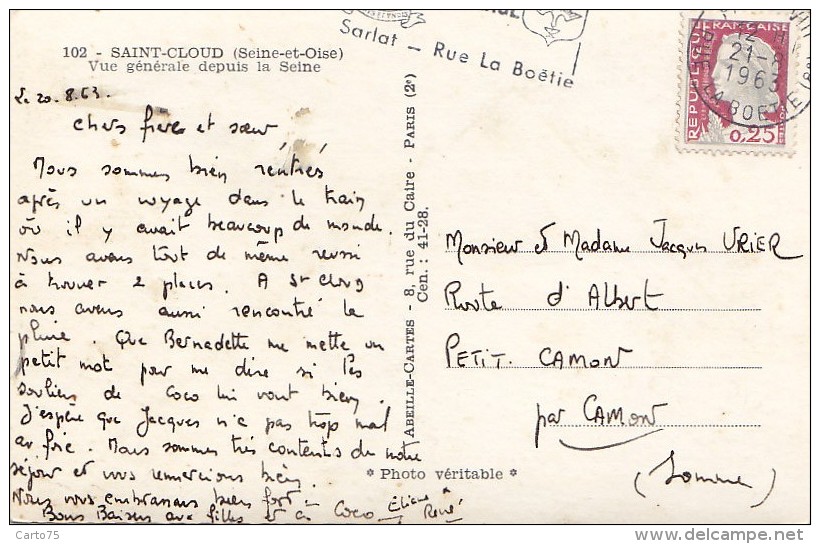 102 - SAINT-CLOUD (Seine-et-Oise)
Vue générale depuis la Seine
Sarlat — Rue La Boëtie
RÉPUBLIQUE FRANÇAISE
12 H
21-8
1963
LA BOETIE
0,25
Le 20.8.63.
Chers frères et sœur
Nous sommes bien rentrés
après un voyage dans le train
où il y avait beaucoup de monde.
Nous avons tout de même reussi
à trouver 2 places. A St Cloud
nous avons aussi rencontré la
pluie. Que Bernadette me mette un
petit mot pour me dire si les
souliers de Coco lui vont bien.
J'espère que Jacques n'a pas trop mal
au foie. Nous sommes très contents de notre
séjour et vous remercions bien.
Nous vous embrassons bien fort
Bons Baisers aux filles et à Coco Eliane
René
ABEILLE-CARTES - 8, rue du Caire - PARIS (2e)
Cen. : 41-28.
* Photo véritable *
Monsieur et Madame Jacques URIER
Route d'Albert
PETIT. CAMON
par CAMON
(Somme)
Carto75
www.delcampe.net